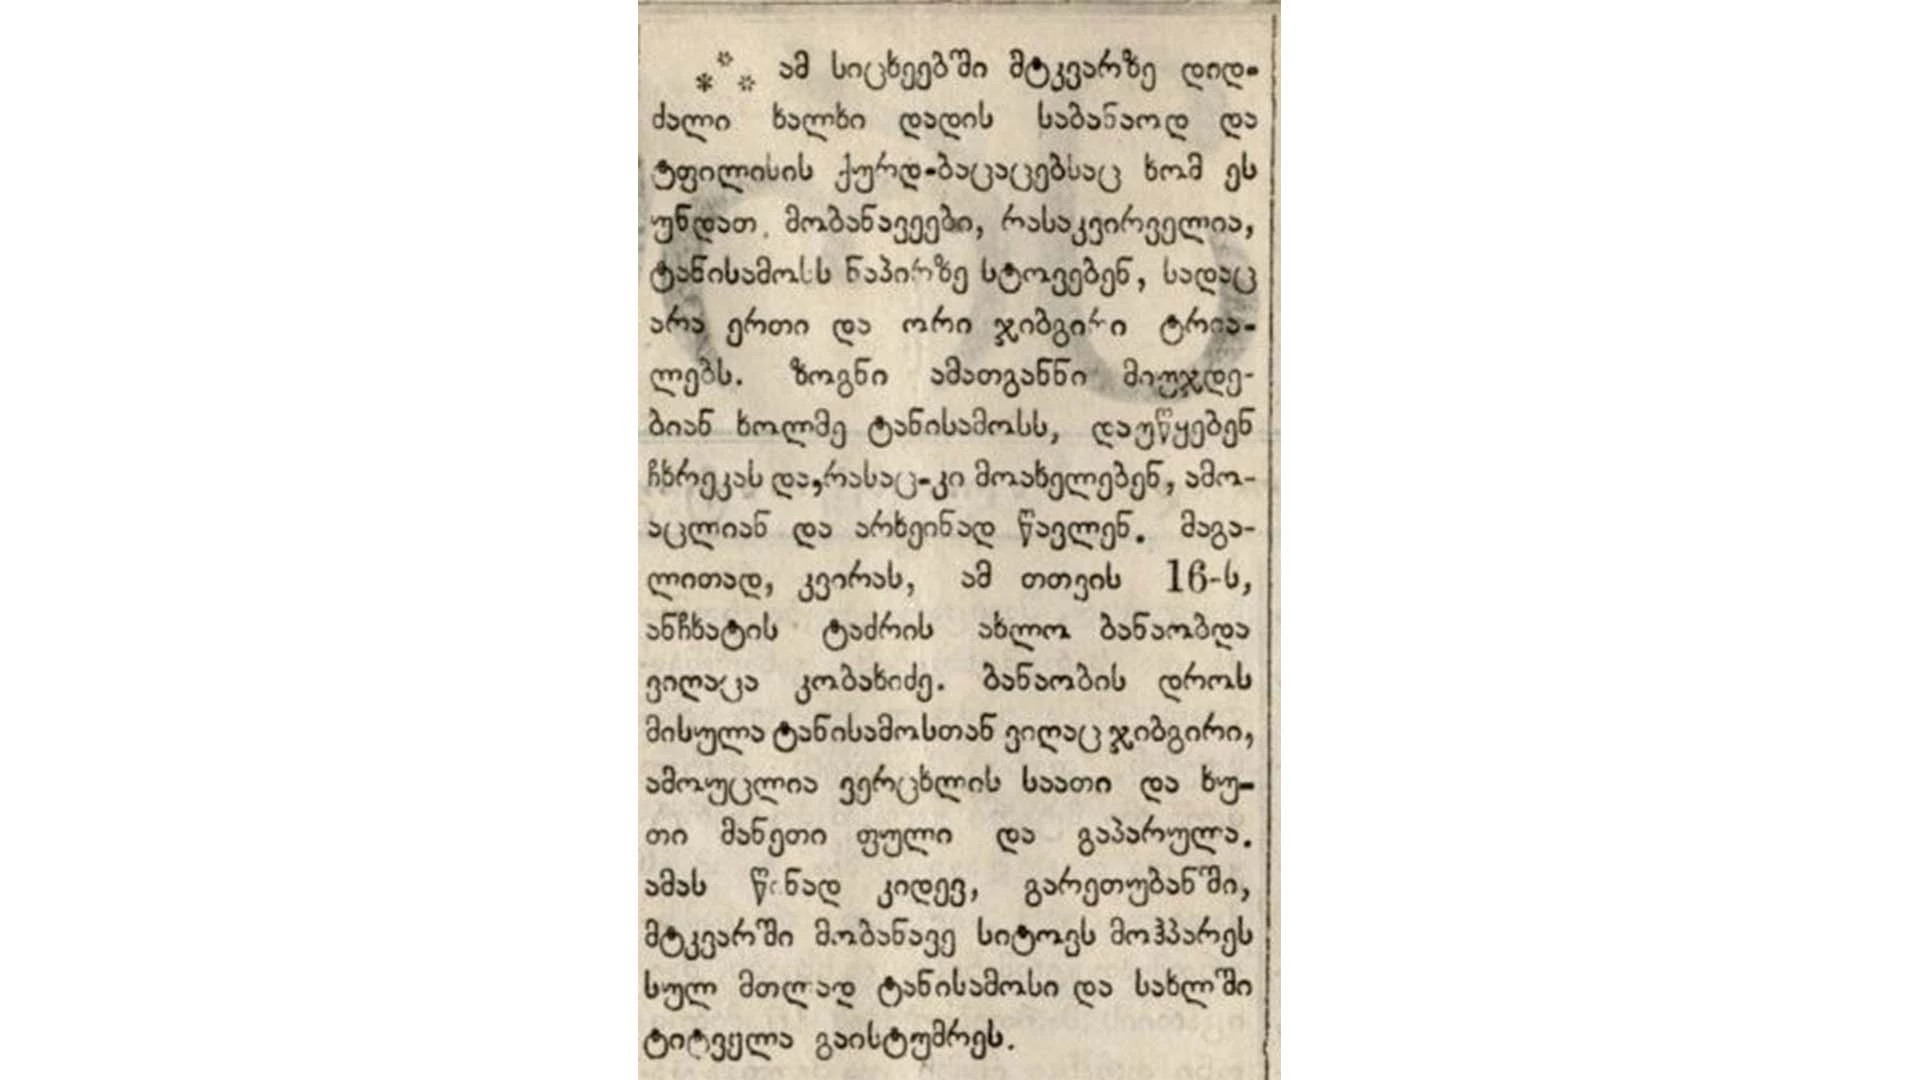 ⁂ ამ სიცხეებში მტკვარზე დიდ-
ძალი ხალხი დადის საბანაოდ და
ტფილისის ქურდ-ბაცაცებსაც ხომ ეს
უნდათ. მობანავეები, რასაკვირველია,
ტანისამოსს ნაპირზე სტოვებენ, სადაც
არა ერთი და ორი ჯიბგირი ტრია-
ლებს. ზოგნი ამათგანნი მიუჯდე-
ბიან ხოლმე ტანისამოსს, დაუწყებენ
ჩხრეკას და, რასაც-კი მოახელებენ, ამო-
აცლიან და არხეინად წავლენ. მაგა-
ლითად, კვირას, ამ თთვის 16-ს,
ანჩხატის ტაძრის ახლო ბანაობდა
ვიღაცა კობახიძე. ბანაობის დროს
მისულა ტანისამოსთან ვიღაც ჯიბგირი,
ამოუცლია ვერცხლის საათი და ხუ-
თი მანეთი ფული და გაპარულა.
ამას წინად კიდევ, გარეთუბანში,
მტკვარში მობანავე სიტოვს მოჰპარეს
სულ მთლად ტანისამოსი და სახლში
ტიტველა გაისტუმრეს.